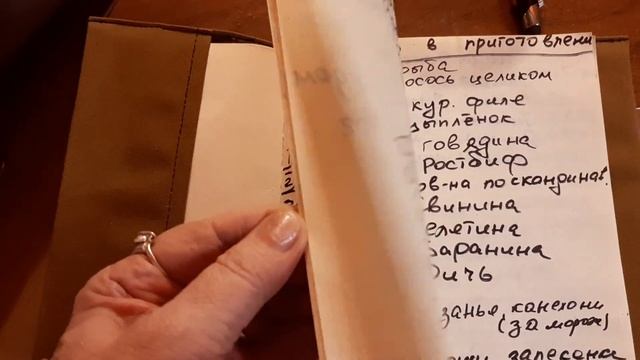 в приготовлени
рыба
осось целиком
кур. филе
цыплёнок
говядина
Ростбиф
ов-на по скандинав.
винина
елятина
Баранина
Дичь
занья, канелони
(за морож)
запекана